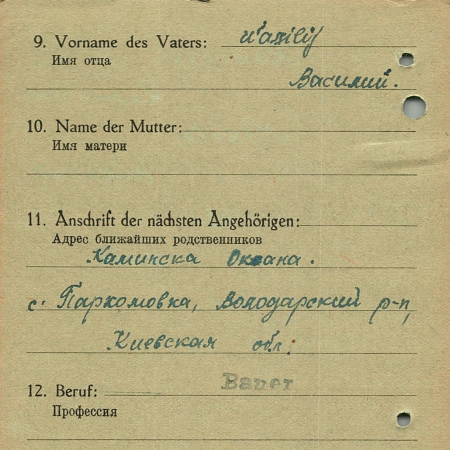 9. Vorname des Vaters: Wasilij
Имя отца
Василий.
10. Name der Mutter:
Имя матери
11. Anschrift der nächsten Angehörigen:
Адрес ближайших родственников
Каминска Оксана.
с. Пархомовка, Володарский р-н,
Киевская обл.
12. Beruf: Bauer
Профессия